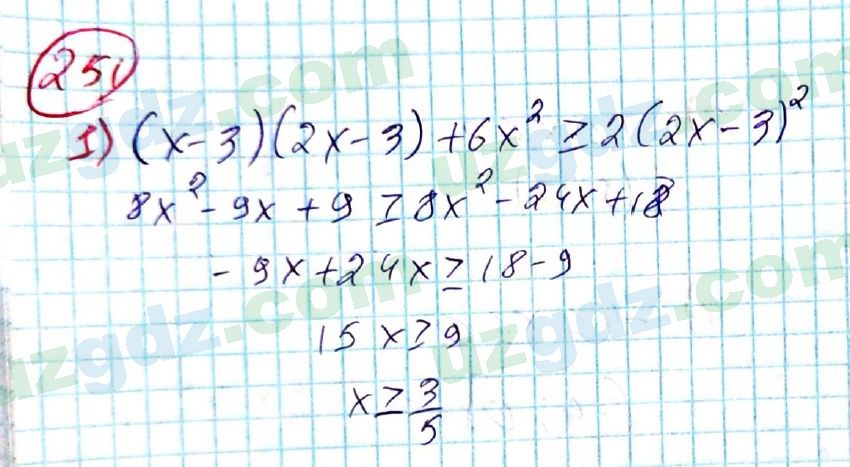 251
1) (x-3)(2x-3)+6x² ≥ 2(2x-3)²
8x²-9x+9 ≥ 8x²-24x+18
-9x+24x ≥ 18-9
15x ≥ 9
x ≥ 3/5
uzgdz.com